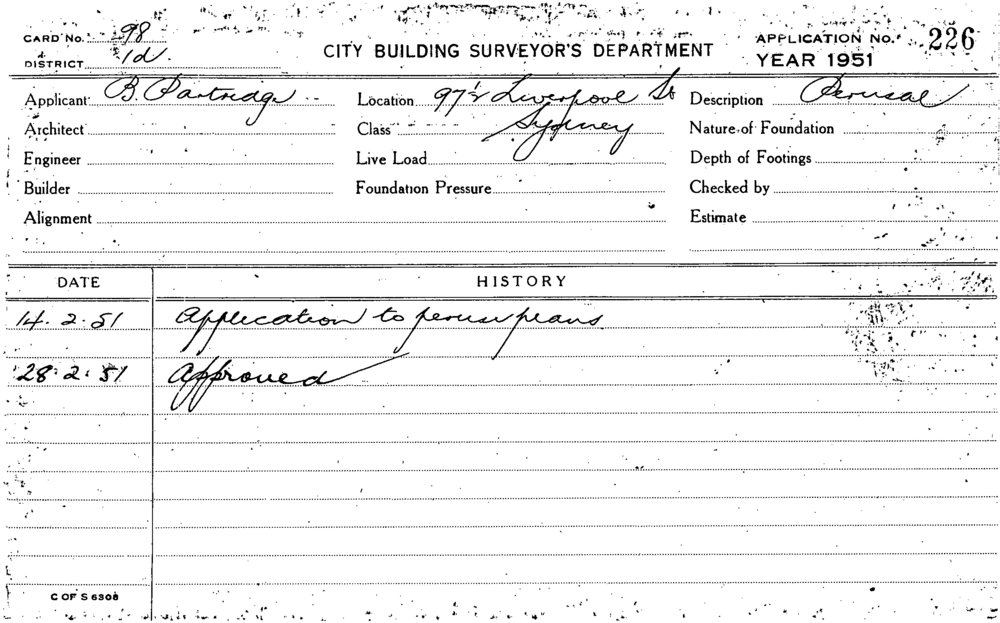 CARD No. 98
DISTRICT 1d.
CITY BUILDING SURVEYOR'S DEPARTMENT
APPLICATION No. 226
YEAR 1951
Applicant B. Partridge
Location 97½ Liverpool St
Description Perusal
Architect
Class Sydney
Nature of Foundation
Engineer
Live Load
Depth of Footings
Builder
Foundation Pressure
Checked by
Alignment
Estimate
DATE HISTORY
14.2.51 Application to peruse plans
28.2.51 Approved
C OF S 6308